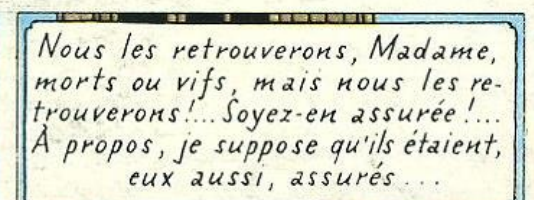 Nous les retrouverons, Madame,
morts ou vifs, mais nous les re-
trouverons!... Soyez-en assurée!...
À propos, je suppose qu'ils étaient,
eux aussi, assurés...